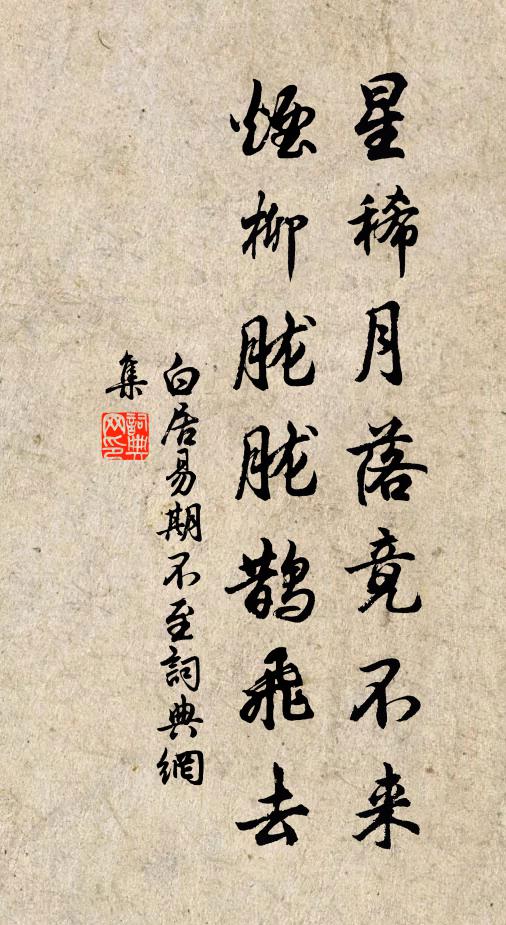 星稀月落竟不来
煙柳胧胧鵲飛去
白居易期不至詞典網
集
詞典
网印